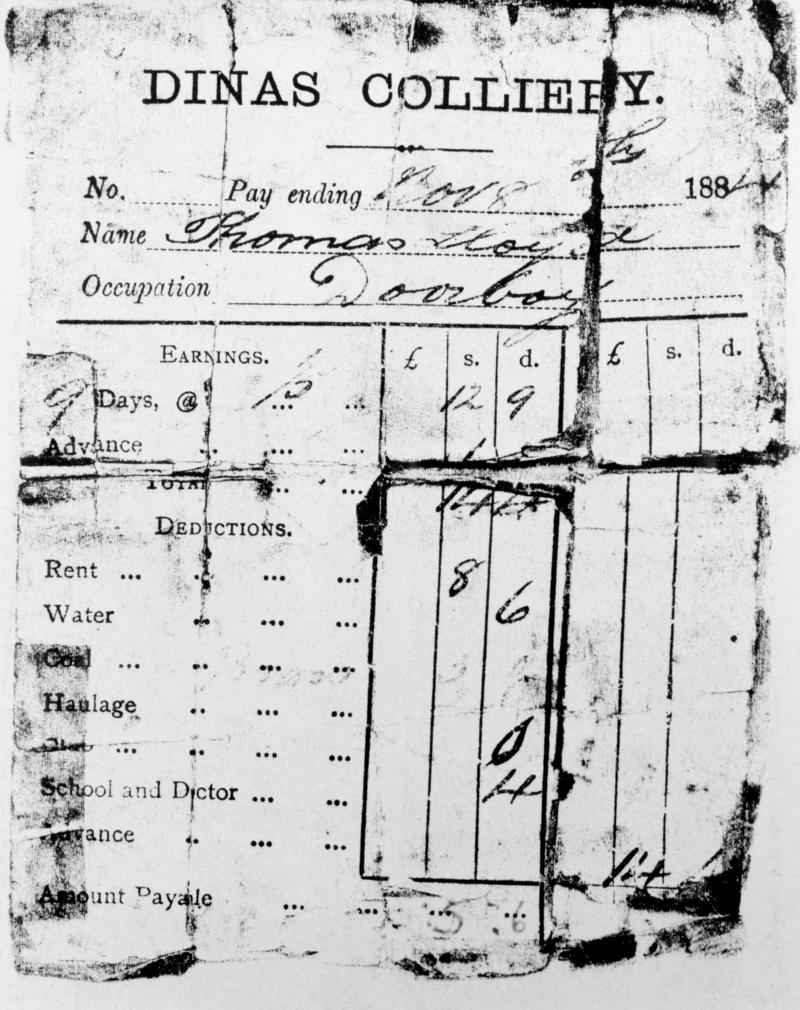 DINAS COLLIERY.
No. Pay ending Nov 8 1884
Name Thomas Lloyd
Occupation Doorboy
EARNINGS. £ s. d. £ s. d.
9 Days, @ 1/5 ... ... 12 9
Advance ... ... ...
TOTAL ... ... 14 4
DEDUCTIONS.
Rent ... ... ... ... 8
Water ... ... ... 6
Coal ... ... ... ...
Haulage ... ... ...
... ... ... ... 0
School and Doctor ... ... 4
Advance ... ... ...
Amount Payable ... ... ... ... 5 6